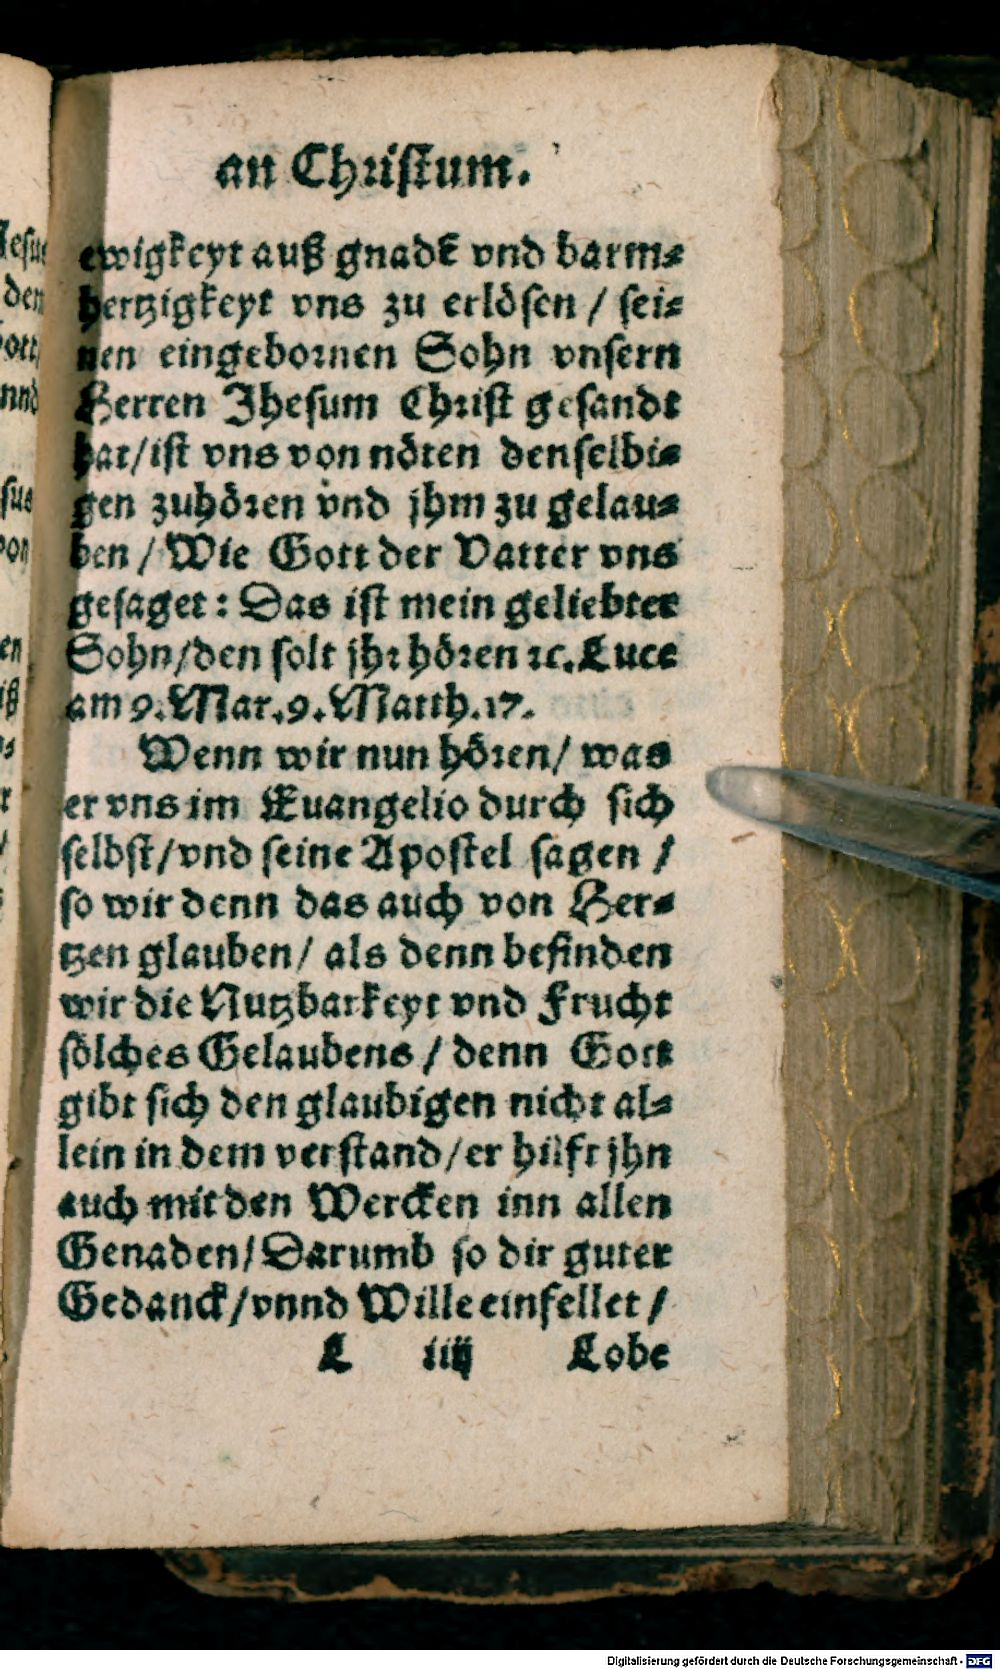 an Christum.
ewigkeyt auß gnadẽ vnd barm⸗
hertzigkeyt vns zu erlösen / sei⸗
nen eingebornen Sohn vnsern
Herren Jhesum Christ gesandt
hat/ist vns von nöten denselbi⸗
gen zuhören vnd jhm zu gelau⸗
ben / Wie Gott der Vatter vns
gesaget : Das ist mein geliebter
Sohn/den solt jhr hören ꝛc. Luce
am 9. Mar. 9. Matth. 17.
Wenn wir nun hören/ was
er vns im Euangelio durch sich
selbst/vnd seine Apostel sagen /
so wir denn das auch von Her⸗
tzen glauben/ als denn befinden
wir die Nutzbarkeyt vnd Frucht
sölches Gelaubens / denn Gott
gibt sich den glaubigen nicht al⸗
lein in dem verstand/er hilft jhn
auch mit den Wercken inn allen
Genaden/Darumb so dir guter
Gedanck/vnnd Wille einfellet /
L iiij Lobe
Digitalisierung gefördert durch die Deutsche Forschungsgemeinschaft - DFG